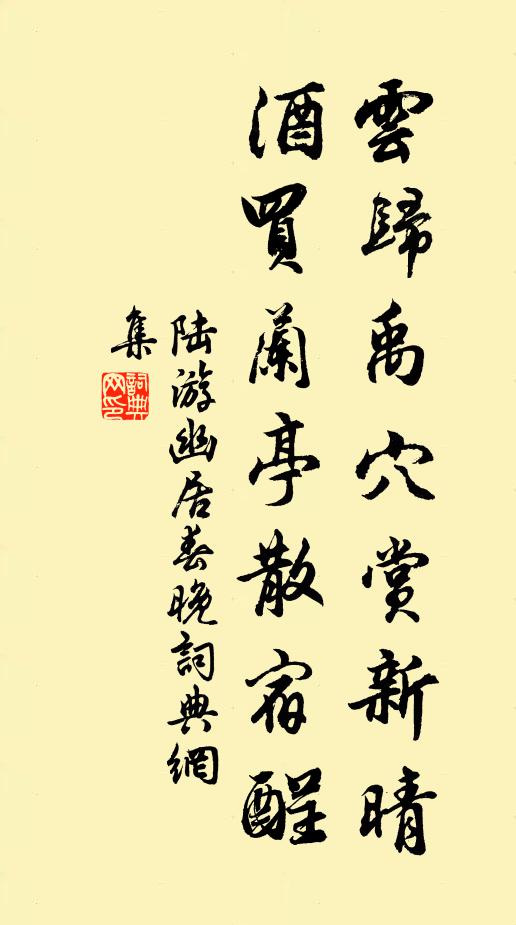 雲歸禹穴賞新晴
酒買蘭亭散宿酲
陸游幽居春晚詞典網
集
詞典網印